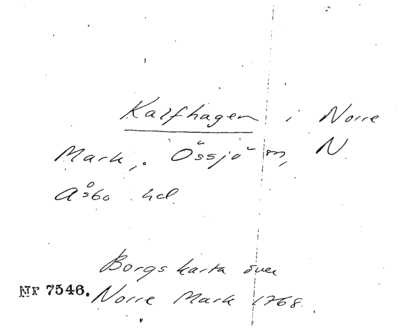 Kalfhagen i Norre
Mark, Össjö sn, N.
Åsbo hd.
Borgs karta över
Nr 7546. Norre Mark 1768.